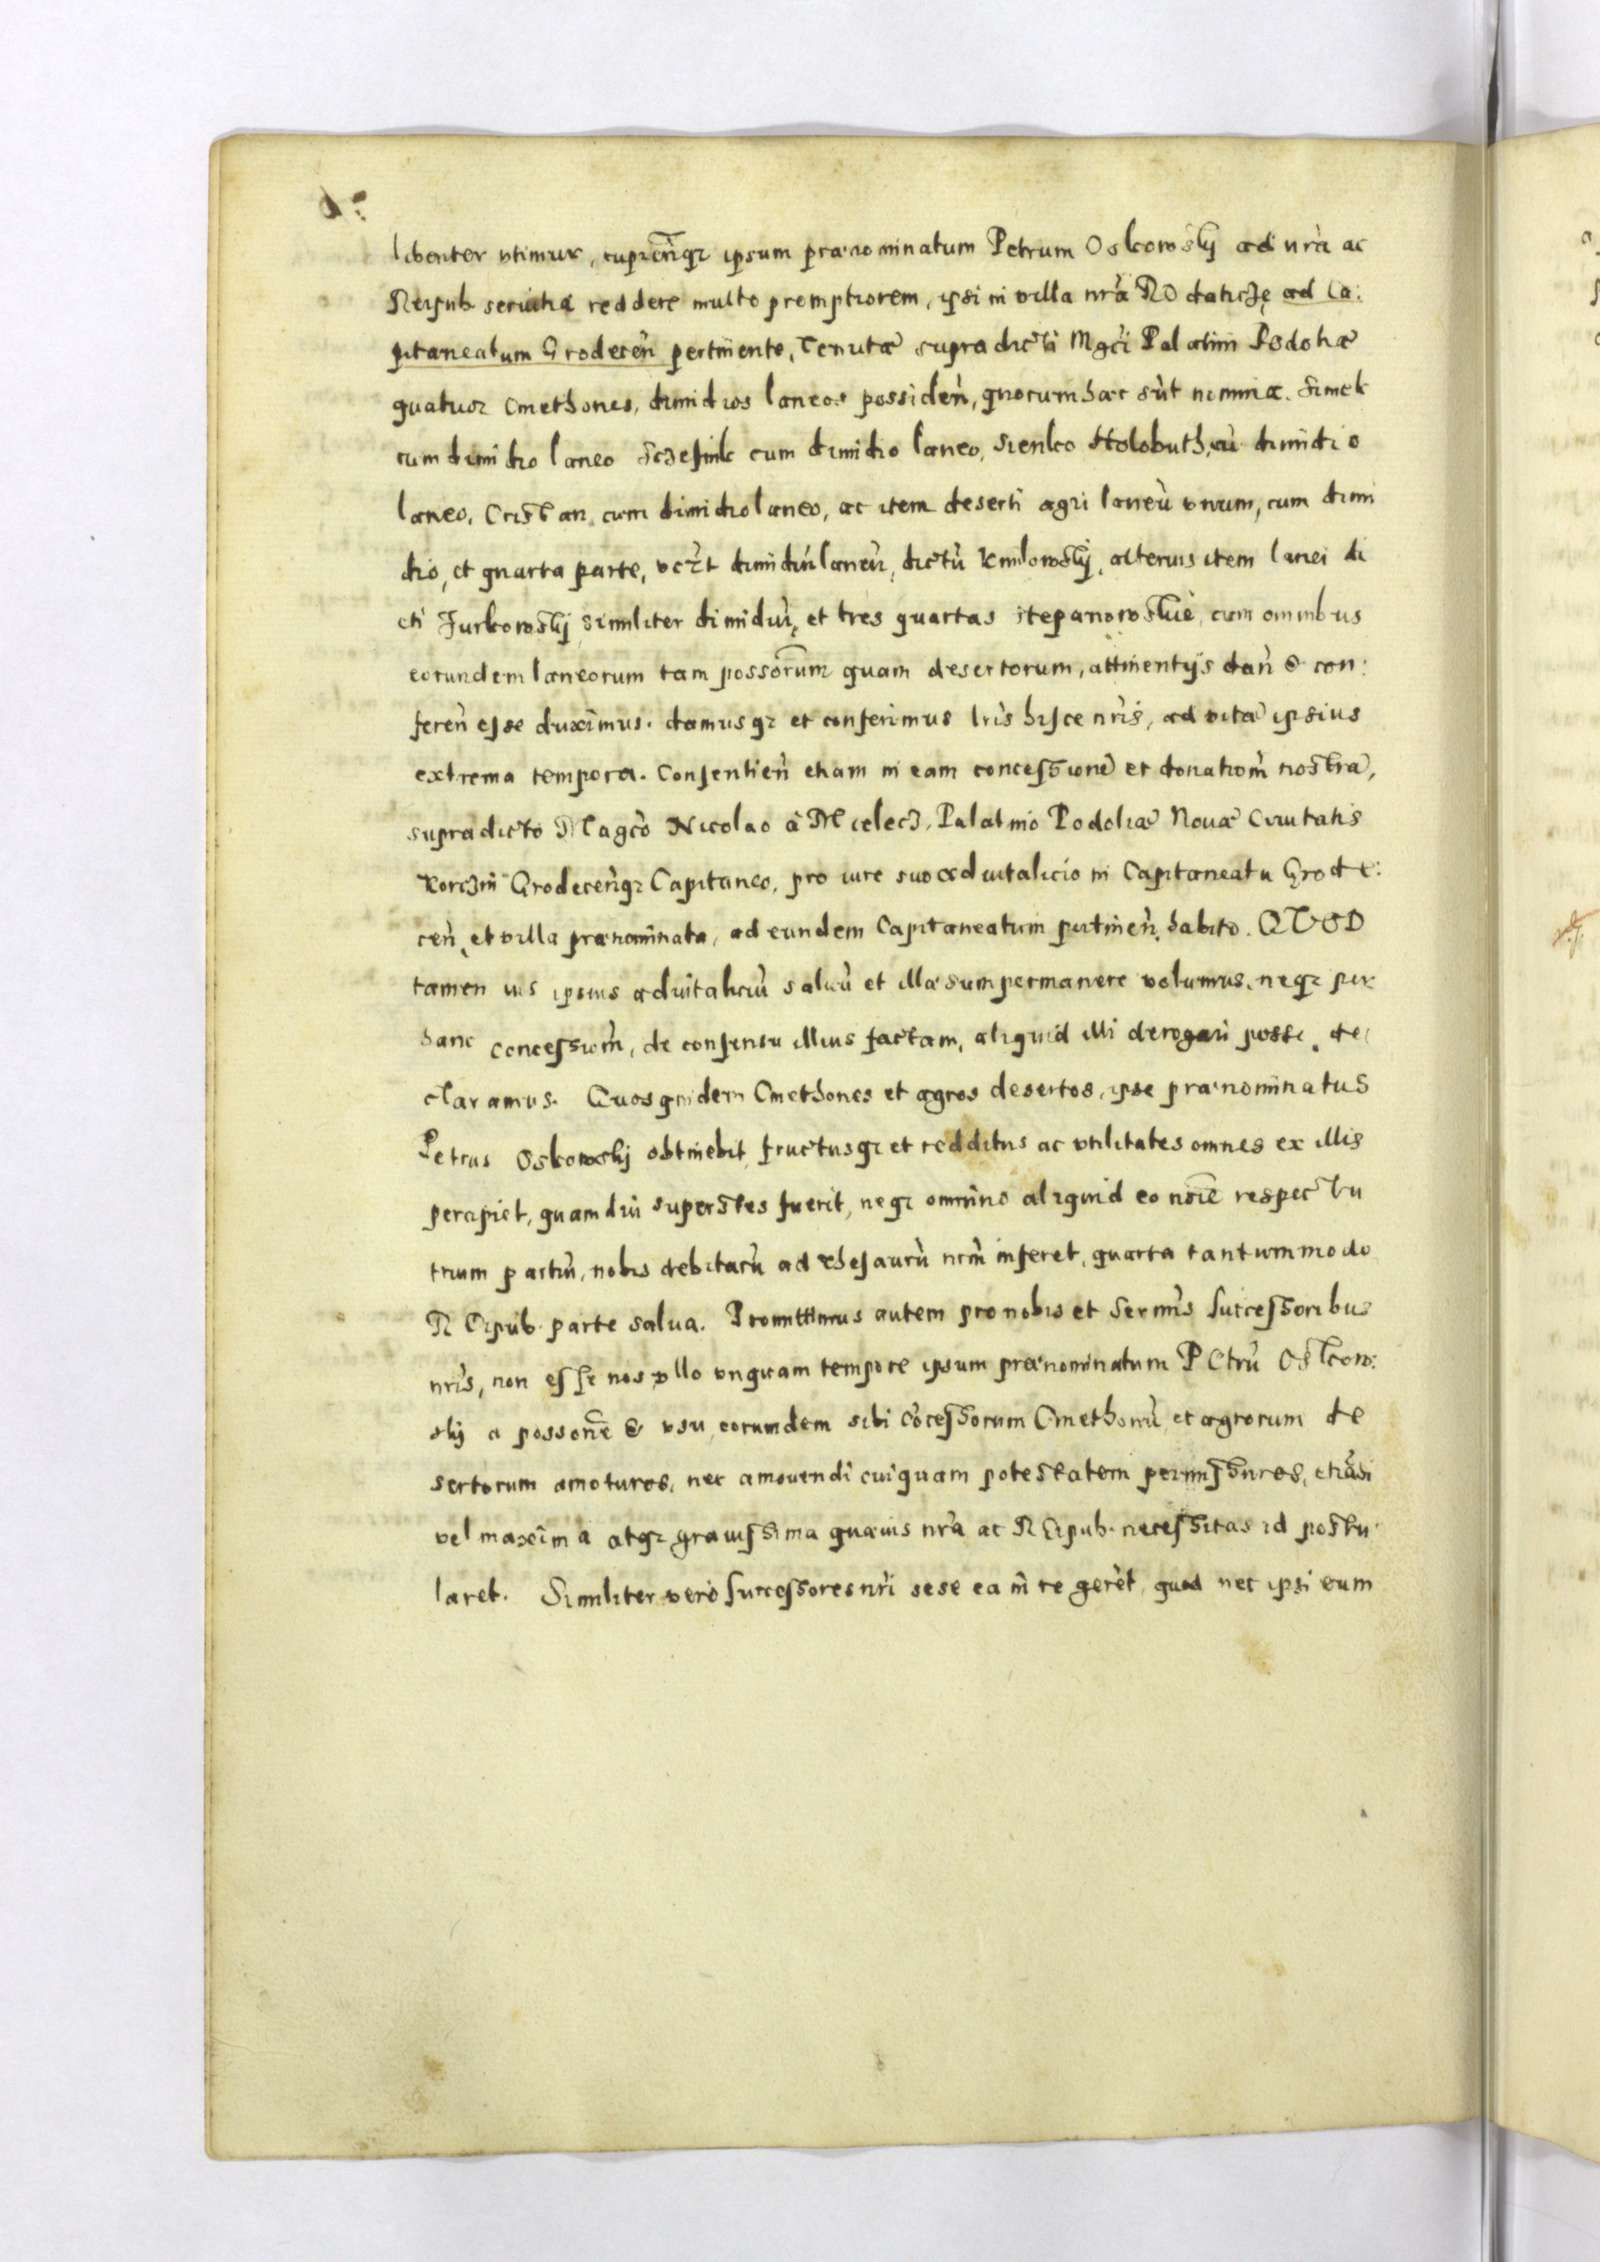 libenter vtimur, cupien̄tqȝ ipsum prænominatum Petrum Oskowskij ad nrā ac
Reipub. seruitia reddere multo promptiorem, ipsi in villa nrā Rodaticze ad Ca:
pitaneatum Grodecen̄ pertinente, Tenutæ supradicti Mgci Palatini Podoliæ
quatuor Cmethones, dimidios laneos possiden̄, quorum hæc sūt nomina. Simek
cum dimidio laneo cum dimidio laneo, Sienko Holobuth, cū dimidio
laneo, Cristan, cum dimidio laneo, ac item deserti agri laneū vnum, cum dimi
dio, et quarta parte, dimidiū laneū, dictū alterius item lanei di
cti Jurkowskij similiter dimidiū, et tres quartas Stepanowskie, cum omnibus
eorundem laneorum tam possorum quam desertorum, attinentijs dan̄ & con:
feren̄ esse duximus. damusqȝ et conferimus lris hisce nris, ad vitæ ipsius
extrema tempora. Consentien̄ etiam in eam concessionē et donationē nostrā,
supradicto Magco Nicolao à Mielecz, Palatino Podoliæ Nouæ Ciuitatis
Korczin Grodecen̄qȝ Capitaneo, pro iure suo aduitalicio in Capitaneatu Grode:
cen̄, et villa prænominata, ad eundem Capitaneatum pertinen̄, habito. QVOD
tamen ius ipsius aduitaliciū saluū et illæsum permanere volumus, neqȝ per
hanc concessionē, de consensu illius factam, aliquid illi derogari posse de
claramus. Quos quidem Cmethones et agros desertos, ipse prænominatus
Petrus Oskowskij obtinebit, fructusqȝ et redditus ac vtilitates omnes ex illis
percipiet, quamdiu superstes fuerit, neqȝ omnino aliquid eo noīe respectu
trium partiū, nobis debitarū ad thesaurū nrm̄ inferet, quarta tantummodo
REipub. parte salua. Promittimus autem pro nobis et Sermīs successoribus
nris, non esse nos vllo vnquam tempore ipsum prænominatum PEtrū Oskow:
skij a possonē & vsu, eorundem sibi cōcessorum Cmethonū, et agrorum de
sertorum amoturos, nec amouendi cuiquam potestatem permissuros, etiāsi
vel maxima atqȝ grauissima quæuis nrā ac REipub. necessitas id postu
laret. Similiter vero successores nri sese ea in re gerēt, quod nec ipsi eum